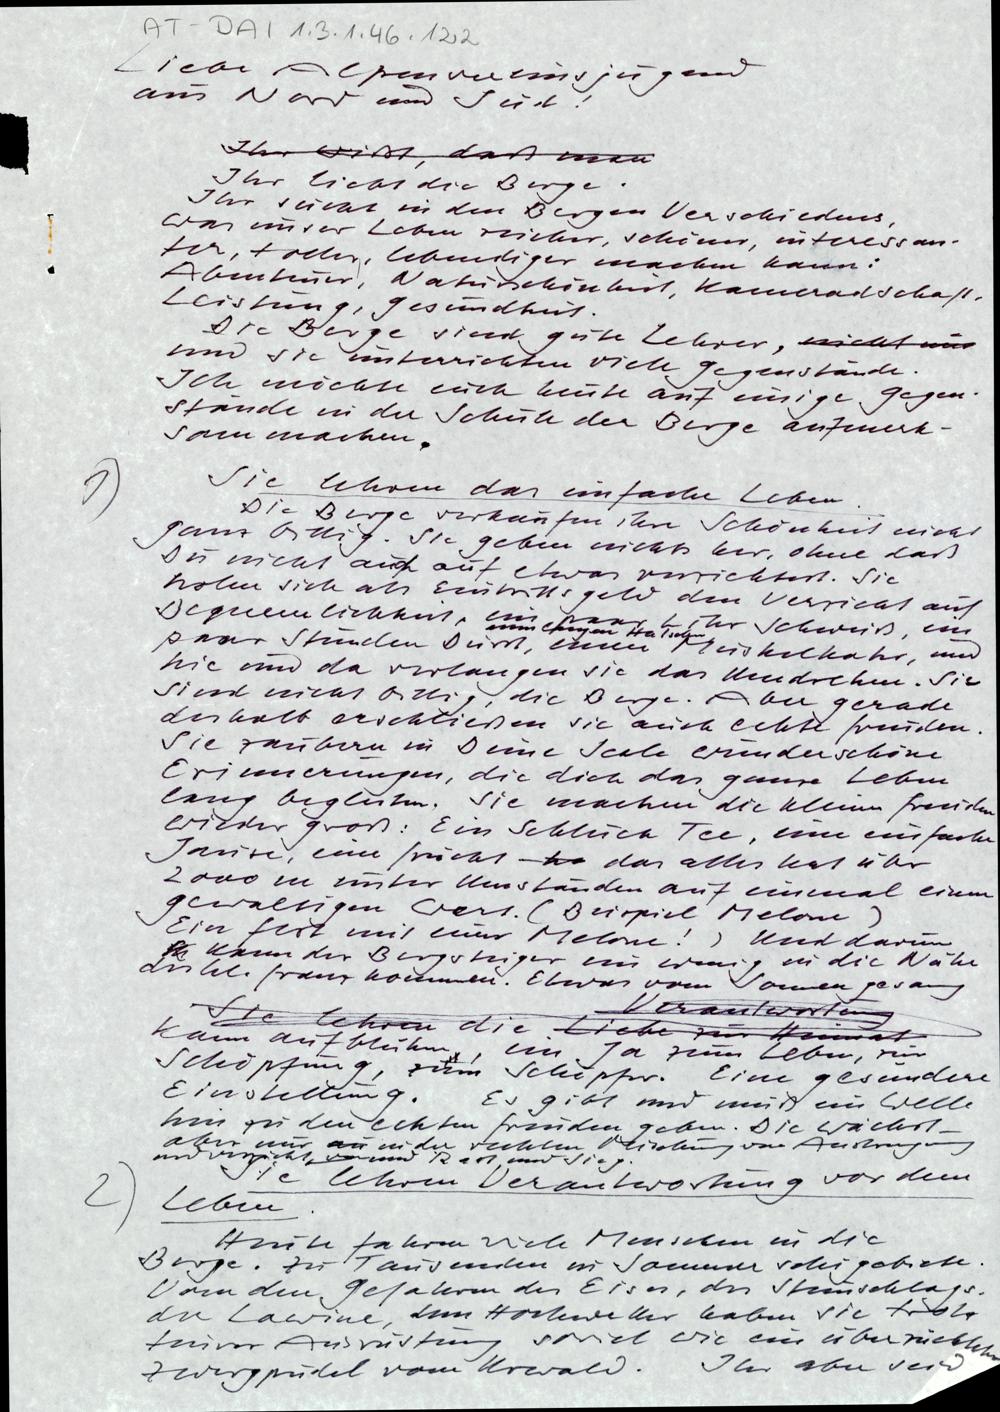 AT-DAI 1.3.1.46.122
Liebe Alpenvereinsjugend
aus Nord und Süd!
Ihr wißt, daß man
Ihr liebt die Berge.
Ihr sucht in den Bergen Verschiedenes,
was unser Leben reicher, schöner, interessan-
ter, toller, lebendiger machen kann:
Abenteuer, Naturschönheit, Kameradschaft,
Leistung, Gesundheit.
Die Berge sind gute Lehrer, nicht nur
und sie unterrichten viele Gegenstände.
Ich möchte euch heute auf einige Gegen-
stände in der Schule der Berge aufmerk-
sam machen.
1) Sie lehren das einfache Leben.
Die Berge verkaufen ihre Schönheit nicht
ganz billig. Sie geben nichts her, ohne daß
Du nicht auch auf etwas verzichtest. Sie
holen sich als Eintrittsgeld den Verzicht auf
Bequemlichkeit, ein paar Liter Schweiß, ein
paar Stunden Durst, einen Muskelkater, und
hie und da verlangen sie das Umdrehen. Sie
sind nicht billig, die Berge. Aber gerade
deshalb erschließen sie auch echte Freuden.
Sie zaubern in Deine Seele wunderschöne
Erinnerungen, die dich das ganze Leben
lang begleiten. Sie machen die kleinen Freuden
wieder groß: Ein Schluck Tee, eine einfache
Jause, eine Frucht - das alles hat über
2000 m unter Umständen auf einmal einen
gewaltigen Wert. (Beispiel Melone)
Ein Fest mit einer Melone!) Und darum
kann der Bergsteiger ein wenig in die Nähe
des hl. Franz kommen. Etwas vom Sonnengesang
Verantwortung
Sie lehren die Liebe zur Heimat
kann aufblühen, ein Ja zum Leben, zur
Schöpfung, zum Schöpfer. Eine gesündere
Einstellung. Es gibt und muß ein Welle
hin zu den echten Freuden geben. Die wächst
aber nur in der rechten Mischung von Anstrengung
und Verzicht, und Rast, und Sieg.
2) Sie lehren Verantwortung vor dem
Leben.
Heute fahren viele Menschen in die
Berge. Zu Tausenden in Sommerschigebiete.
Von den Gefahren des Eises, des Steinschlags,
der Lawine, dem Hochwetter haben sie trotz
teurer Ausrüstung soviel wie ein überzüchteter
Zwergpudel vom Urwald. Ihr aber seid